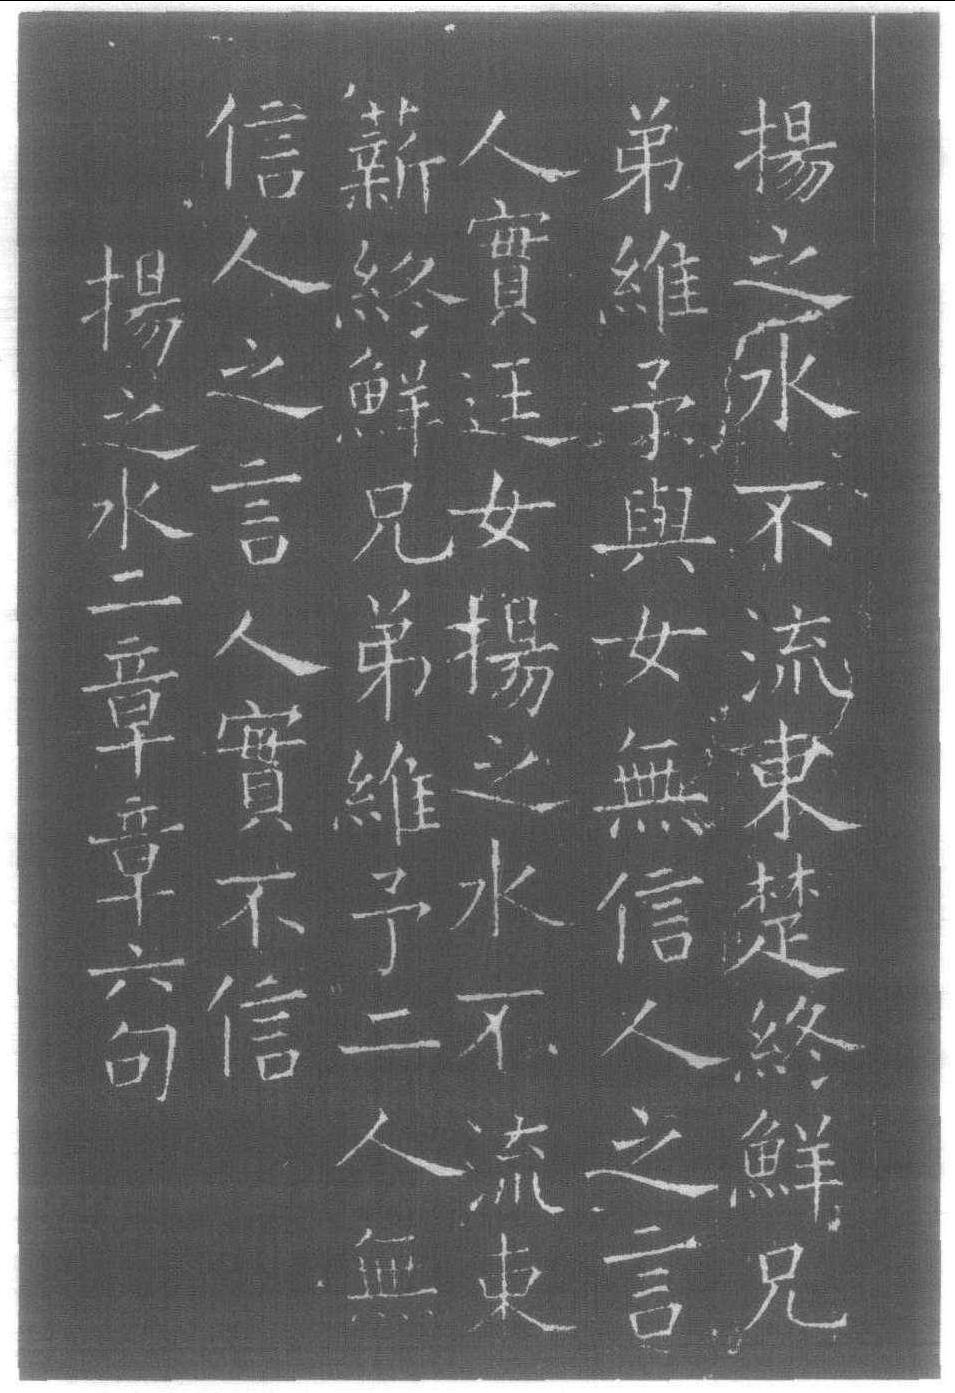 揚之水不流東楚終鮮兄
弟維予與女無信人之言
人實迋女揚之水不流東
薪終鮮兄弟維予二人無
信人之言人實不信
揚之水二章章六句